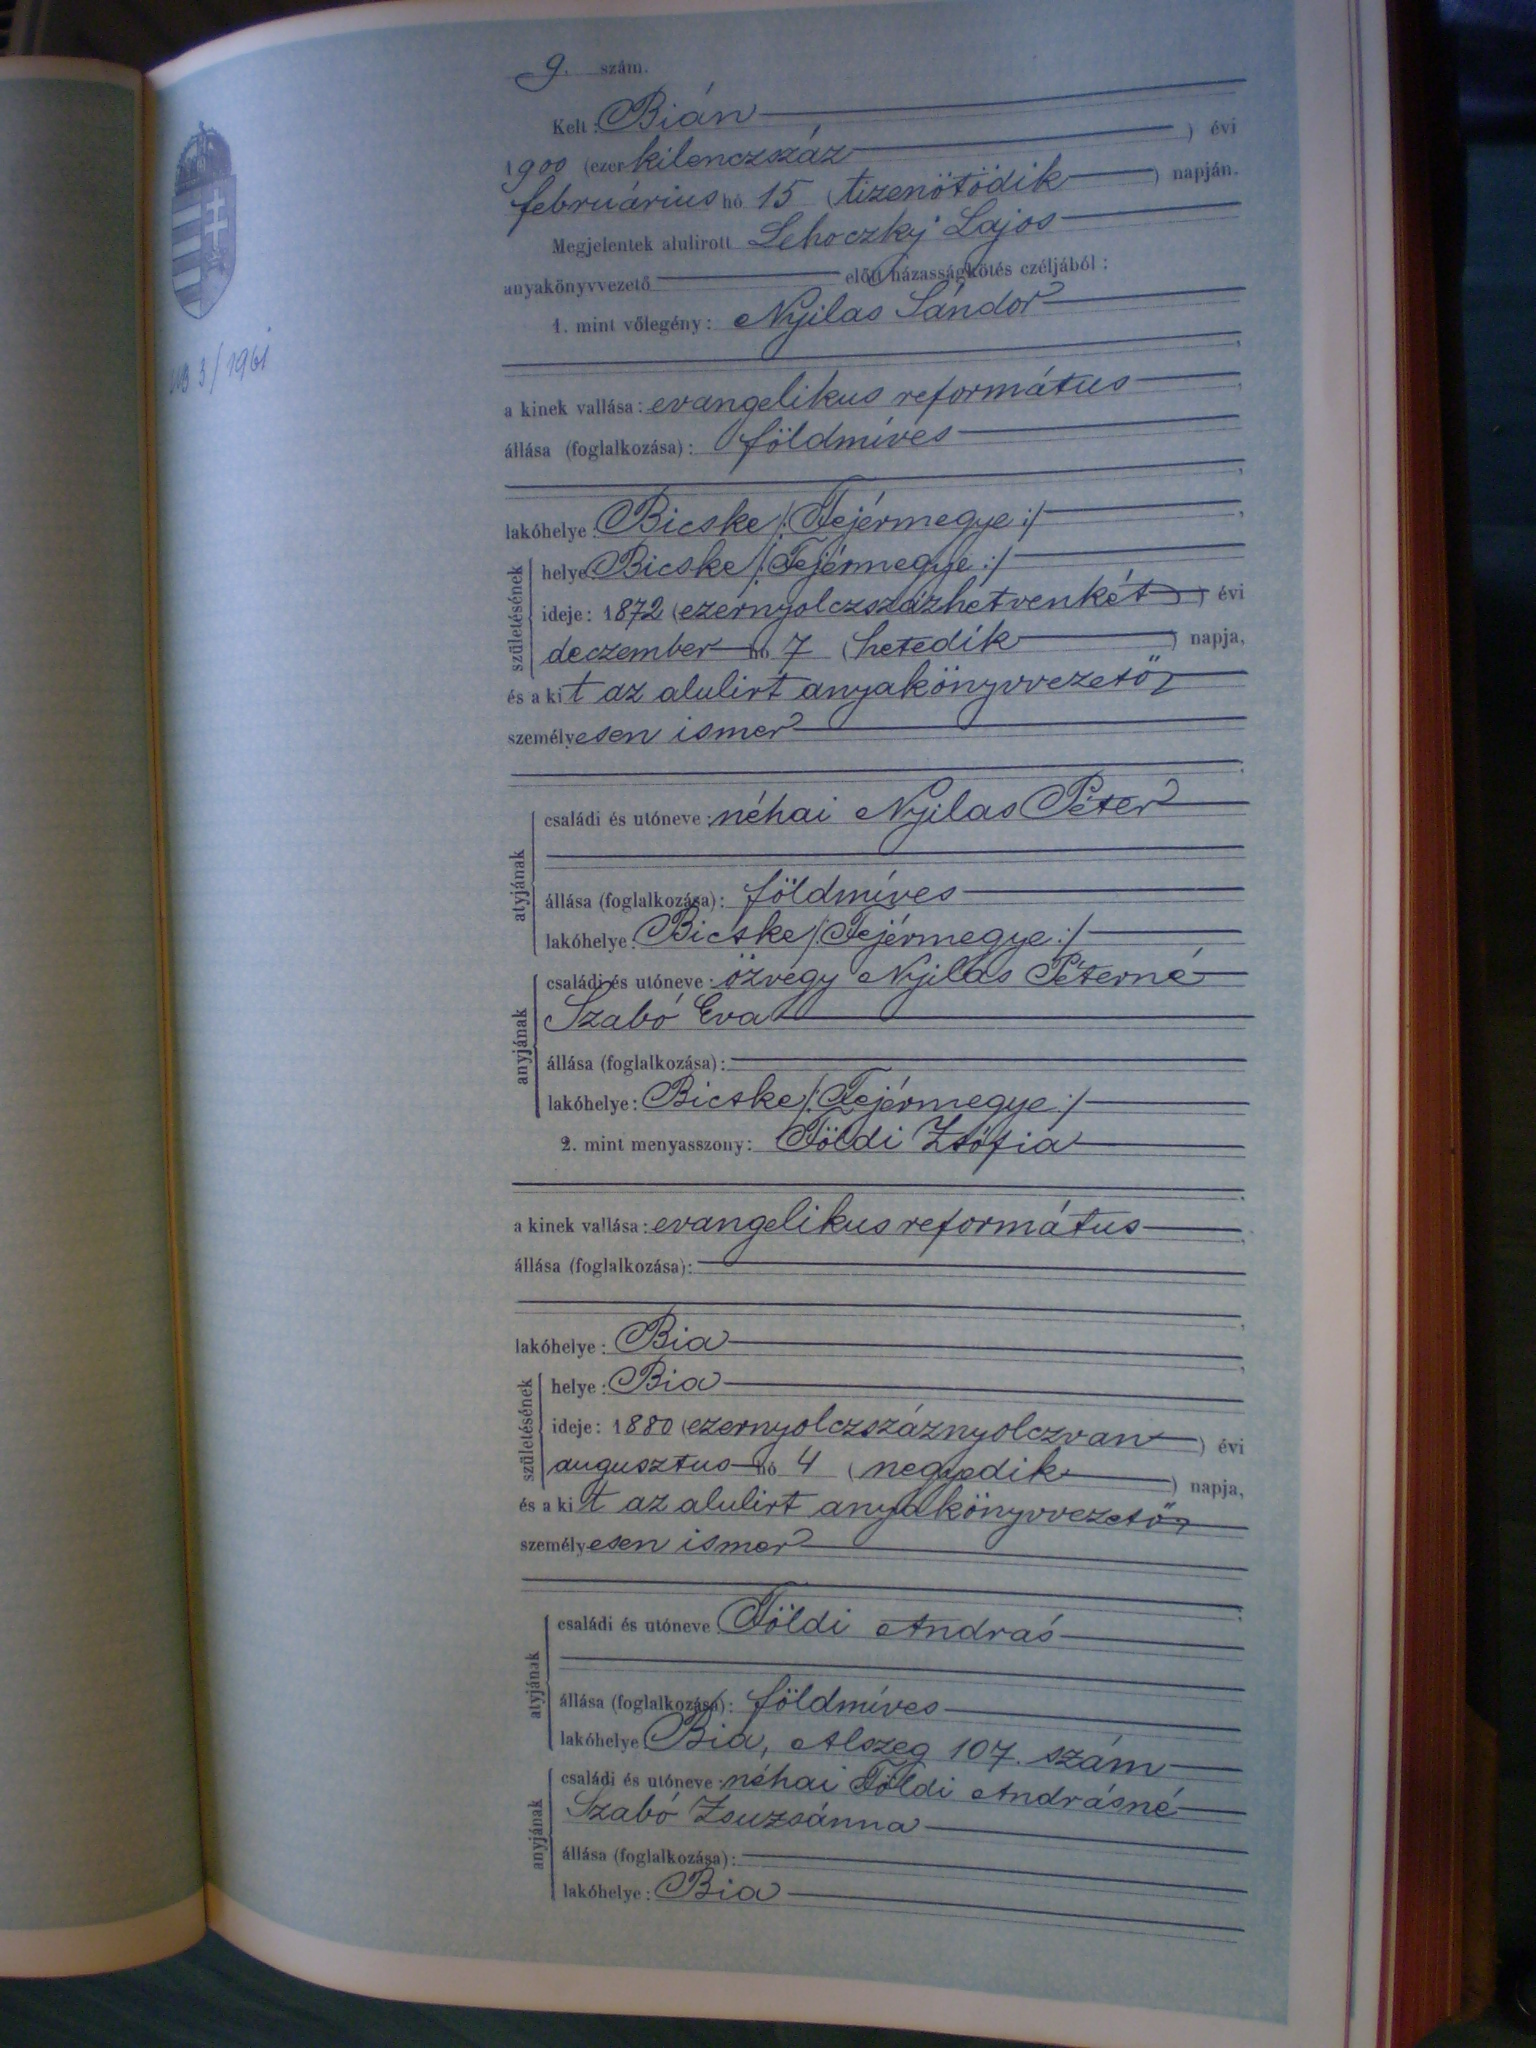 9. szám.
Kelt: Bián
1900 (ezer kilenczszáz) évi
február​ius hó 15 (tizenötödik) napján.
Megjelentek alulirott Lehoczky Lajos
anyakönyvvezető előtt házasságkötés czéljából:
1. mint vőlegény: Nyilas Sándor
3/1961
a kinek vallása: evangelikus református
állása (foglalkozása): földmíves
lakóhelye: Bicske /: Fejérmegye :/
születésének
helye: Bicske /: Fejérmegye :/
ideje: 1872 (ezernyolczszázhetvenkét) évi
deczember hó 7 (hetedik) napja,
és a kit az alulirt anyakönyvvezető
személyesen ismer
atyjának
családi és utóneve: néhai Nyilas Péter
állása (foglalkozása): földmíves
lakóhelye: Bicske /: Fejérmegye :/
anyjának
családi és utóneve: özvegy Nyilas Péterné
Szabó Éva
állása (foglalkozása):
lakóhelye: Bicske /: Fejérmegye :/
2. mint menyasszony: Földi Zsófia
a kinek vallása: evangelikus református
állása (foglalkozása):
lakóhelye: Bia
születésének
helye: Bia
ideje: 1880 (ezernyolczszáznyolczvan) évi
augusztus hó 4 (negyedik) napja,
és a kit az alulirt anyakönyvvezető
személyesen ismer
atyjának
családi és utóneve Földi András
állása (foglalkozása): földmíves
lakóhelye Bia, Alszeg 107. szám
anyjának
családi és utóneve: néhai Földi Andrásné
Szabó Zsuzsánna
állása (foglalkozása):
lakóhelye: Bia